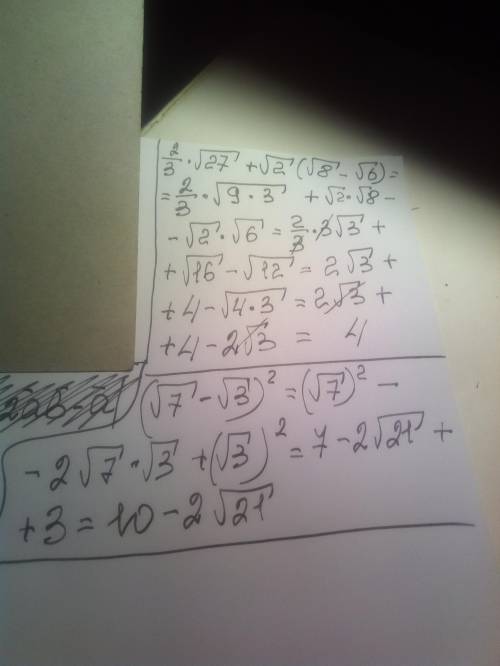 2/3 · √27 + √2 (√8 - √6) =
= 2/3 · √(9 · 3) + √2 · √8 -
- √2 · √6 = 2/3 · 3√3 +
+ √16 - √12 = 2√3 +
+ 4 - √(4 · 3) = 2√3 +
+ 4 - 2√3 = 4
(√7 - √3)² = (√7)² -
- 2√7 · √3 + (√3)² = 7 - 2√21 +
+ 3 = 10 - 2√21